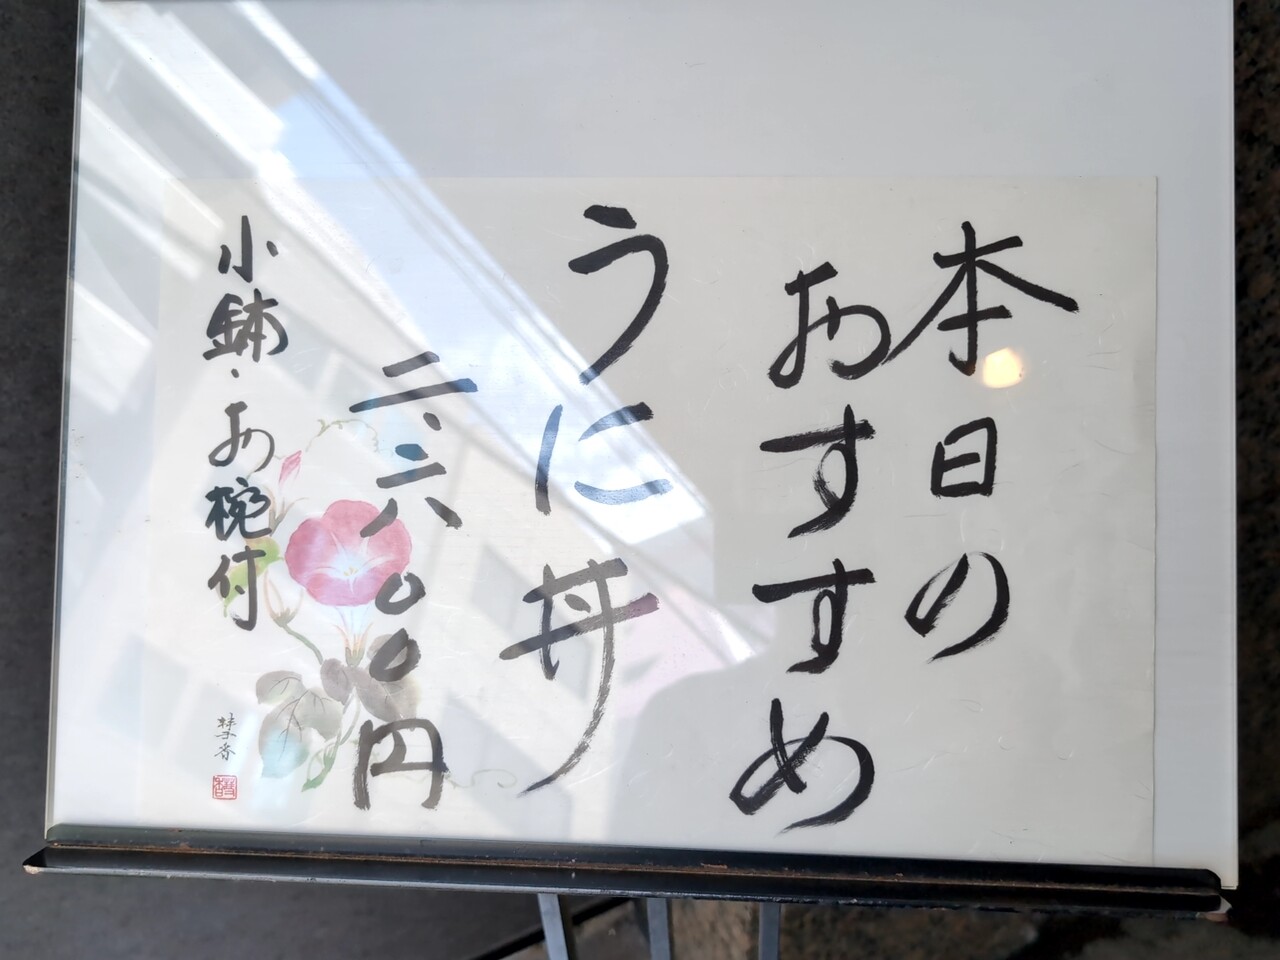 本日の
おすすめ
うに丼
二、六〇〇円
小鉢・お椀付